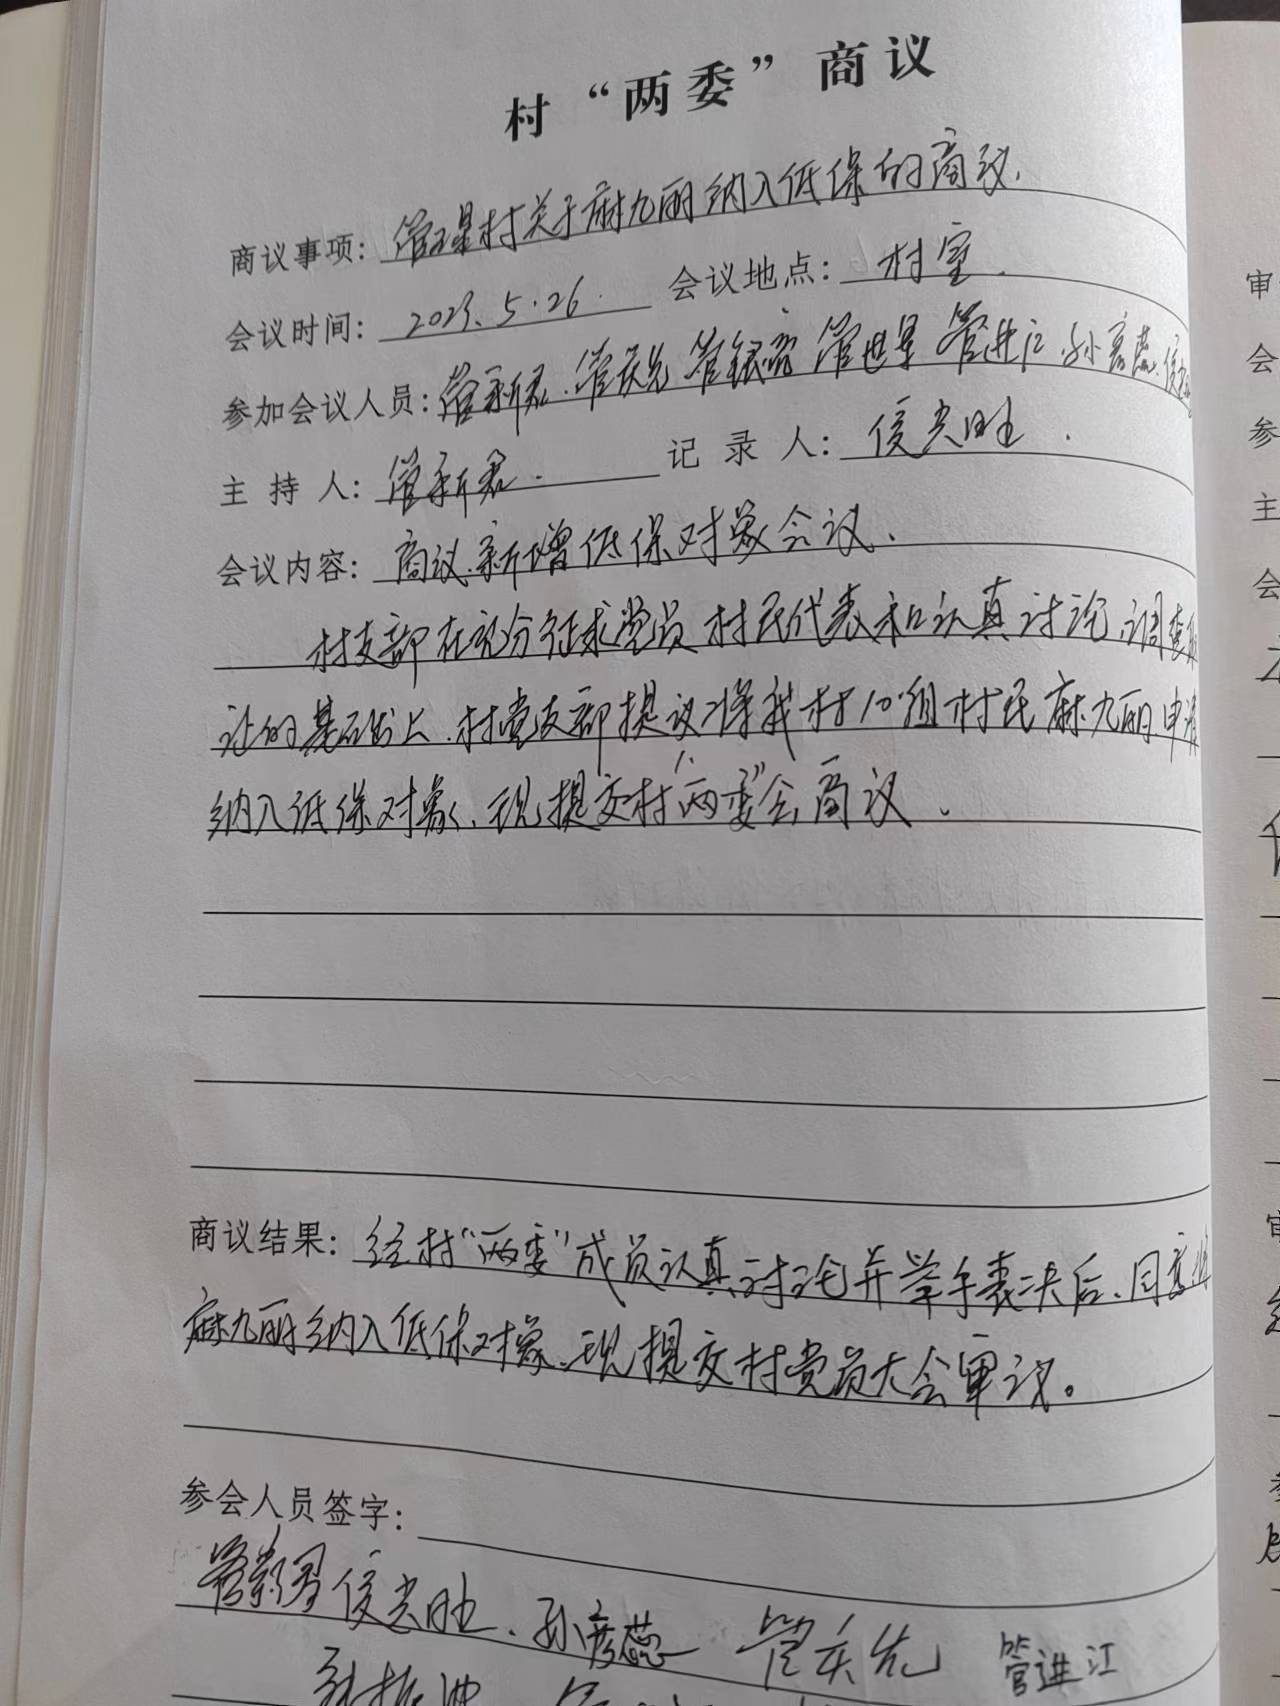 村“两委”商议
商议事项：管理村关于麻九丽纳入低保的商议.
会议时间：2023.5.26. 会议地点：村室.
参加会议人员：管新君.管庆先 管银富 管世军 管进江.孙彦蕊.侯
主持人：管新君. 记录人：侯志胜.
会议内容：商议新增低保对象会议.
村支部在充分征求党员村民代表和认真讨论,调查
证的基础上.村党支部提议将我村10组村民麻九丽申请
纳入低保对象、现提交村“两委”会商议.
商议结果：经村“两委”成员认真讨论并举手表决后.同意将
麻九丽纳入低保对象、现提交村党员大会审议。
参会人员签字：
管新君 侯志胜.孙彦蕊 管庆先 管进江
审
会
参
主
会